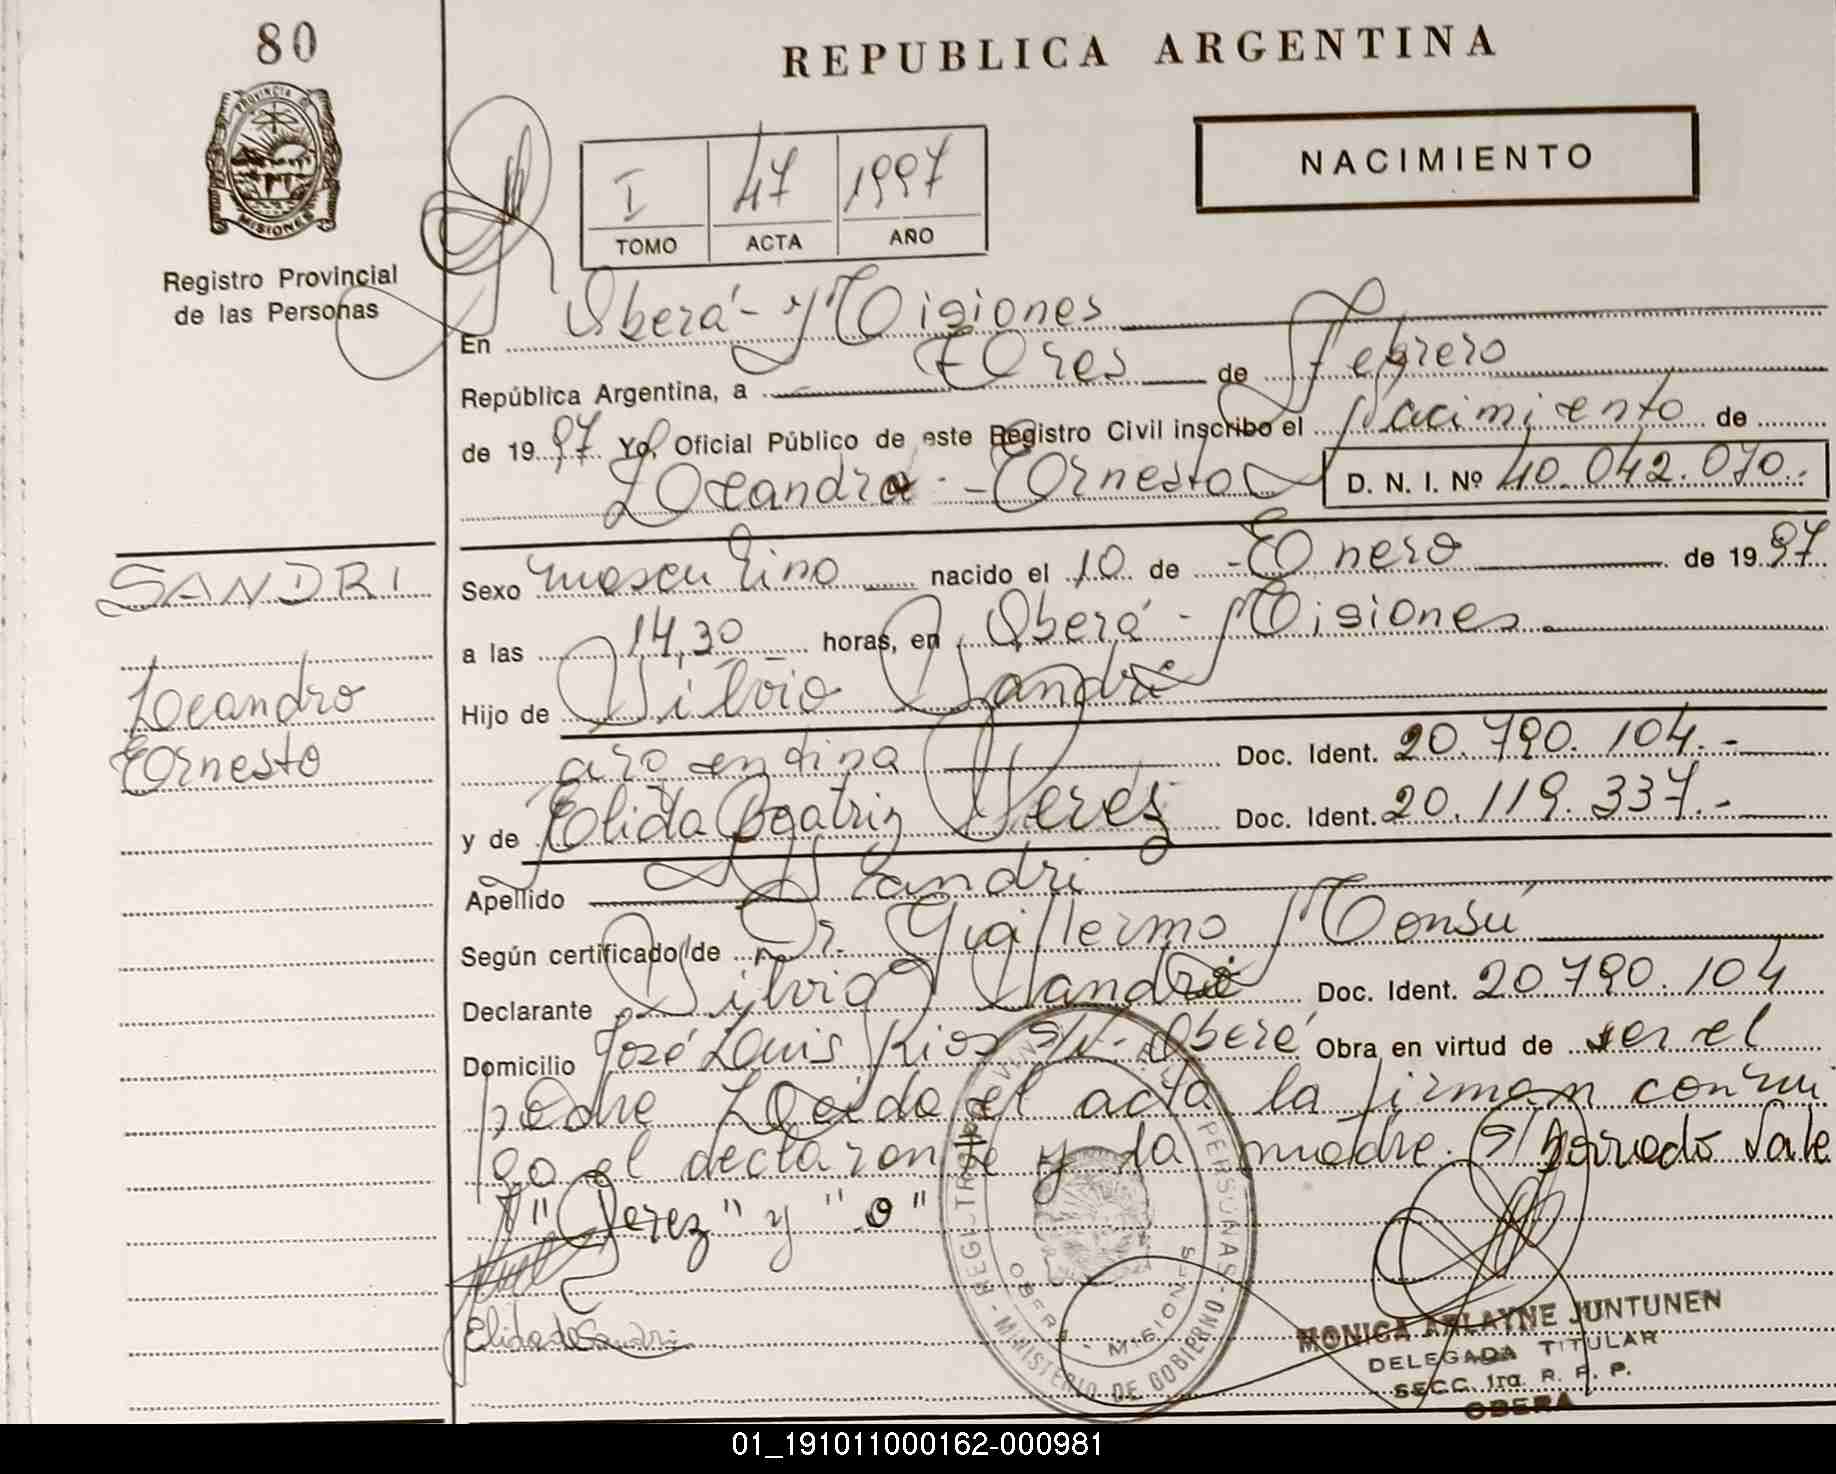 80
REPUBLICA ARGENTINA
PROVINCIA DE
MISIONES
Registro Provincial
de las Personas
NACIMIENTO
I 47 1997
TOMO ACTA AÑO
En Oberá - Misiones
República Argentina, a Tres de Febrero
de 1997 Yo, Oficial Público de este Registro Civil inscribo el Nacimiento de
Leandro - Ernesto D. N. I. Nº 40.042.070.
SANDRI
Leandro
Ernesto
Sexo masculino nacido el 10 de - Enero de 1997
a las 14,30 horas, en Oberá - Misiones
Hijo de Silvio Sandri
argentina Doc. Ident. 20.790.104.-
y de Elida Beatriz Perez Doc. Ident. 20.119.337.-
Apellido Sandri
Según certificado de Dr. Guillermo Monsú
Declarante Silvio Sandri Doc. Ident. 20790.104
Domicilio José Luis Rios s/n - Oberá Obra en virtud de ser el
padre Leida el acta la firman conmi
go el declarante y la madre. s/ borrado Vale
"Perez" y "o"
Elida de Sandri
REGISTRO PERSONAS - MINISTERIO DE GOBIERNO
OBERA - MISIONES
MONICA ARLAYNE JUNTUNEN
DELEGADA TITULAR
SECC. 1ra. R. P. P.
OBERA
01_191011000162-000981